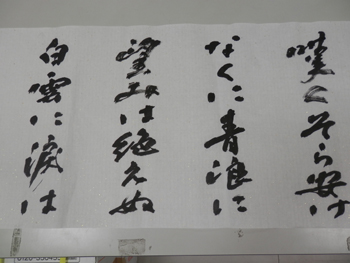 嘆くそら安け
なくに青浪に
望みは絶えぬ
白雲に涙は